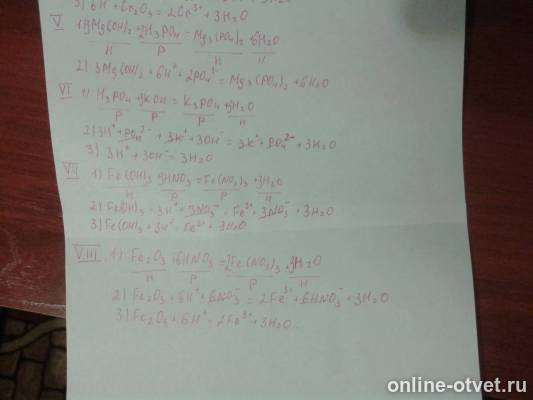 3) 6H⁺ + Cr₂O₃ = 2Cr³⁺ + 3H₂O
V
1) 3Mg(OH)₂ + 2H₃PO₄ = Mg₃(PO₄)₂ + 6H₂O
H P H H
2) 3Mg(OH)₂ + 6H⁺ + 2PO₄³⁻ = Mg₃(PO₄)₂ + 6H₂O
VI 1) H₃PO₄ + 3KOH = K₃PO₄ + 3H₂O
P P P H
2) 3H⁺ + PO₄³⁻ + 3K⁺ + 3OH⁻ = 3K⁺ + PO₄³⁻ + 3H₂O
3) 3H⁺ + 3OH⁻ = 3H₂O
VII 1) Fe(OH)₃ + 3HNO₃ = Fe(NO₃)₃ + 3H₂O
H P P H
2) Fe(OH)₃ + 3H⁺ + 3NO₃⁻ = Fe³⁺ + 3NO₃⁻ + 3H₂O
3) Fe(OH)₃ + 3H⁺ = Fe³⁺ + 3H₂O
VIII 1) Fe₂O₃ + 6HNO₃ = 2Fe(NO₃)₃ + 3H₂O
H P P H
2) Fe₂O₃ + 6H⁺ + 6NO₃⁻ = 2Fe³⁺ + 6HNO₃⁻ + 3H₂O
3) Fe₂O₃ + 6H⁺ = 2Fe³⁺ + 3H₂O
online-otvet.ru